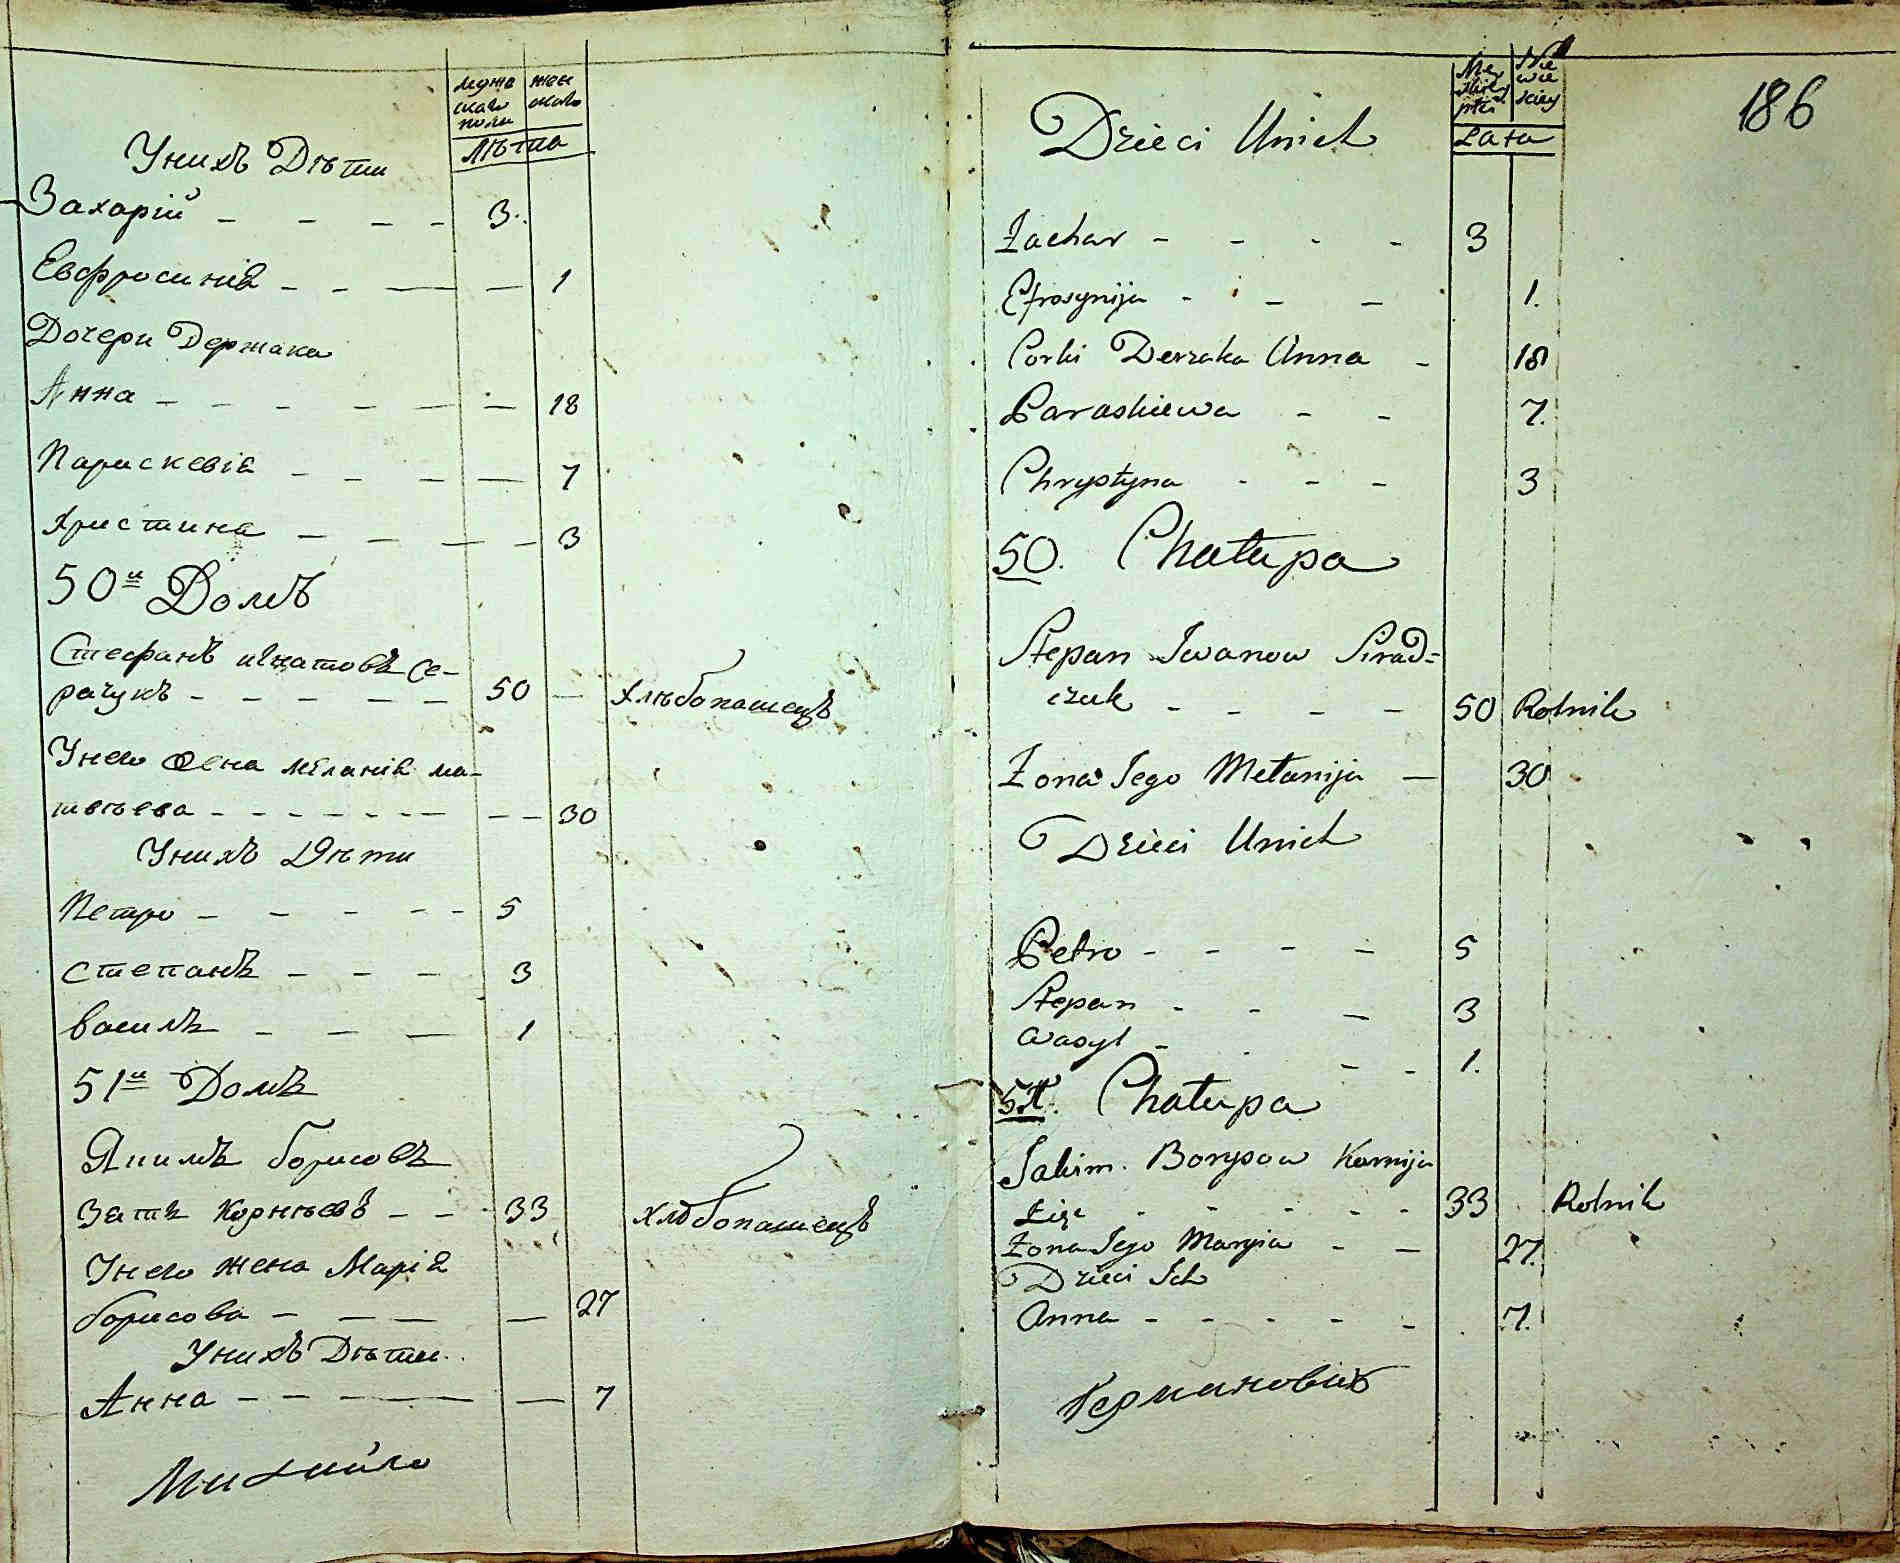 мужеского полу
женского
лѣта
У нихъ Дѣти
Захарій 3
Евфросинія 1
Дочери Держака
Анна 18
Параскевія 7
Христина 3
50й Домъ
Стефанъ Игнатовъ Се-
рачукъ 50 Хлѣбопашецъ
У него жена Меланія Ма-
твѣева 30
У нихъ Дѣти
Петро 5
Степанъ 3
Василь 1
51й Домъ
Якимъ Борисовъ
Зять Корнѣевъ 33 Хлѣбопашецъ
У него Жена Марія
Борисова 27
У нихъ Дѣти
Анна 7
Михайло
186
Lata
Dzieci U nich
Zachar 3
Efrosynija 1.
Corki Derzaka Anna 18
Paraskiewa 7.
Chrystyna 3
50. Chałupa
Stepan Iwanow
czuk 50 Rolnik
Zona Jego Mełanija 30
Dzieci U nich
Petro 5
Stepan 3
Wasyl 1.
51. Chałupa
Jakim Borysow Kornija
Zięc 33 Rolnik
Zona Jego Maryia 27.
Dzieci Ich
Anna 7.
Германовичъ